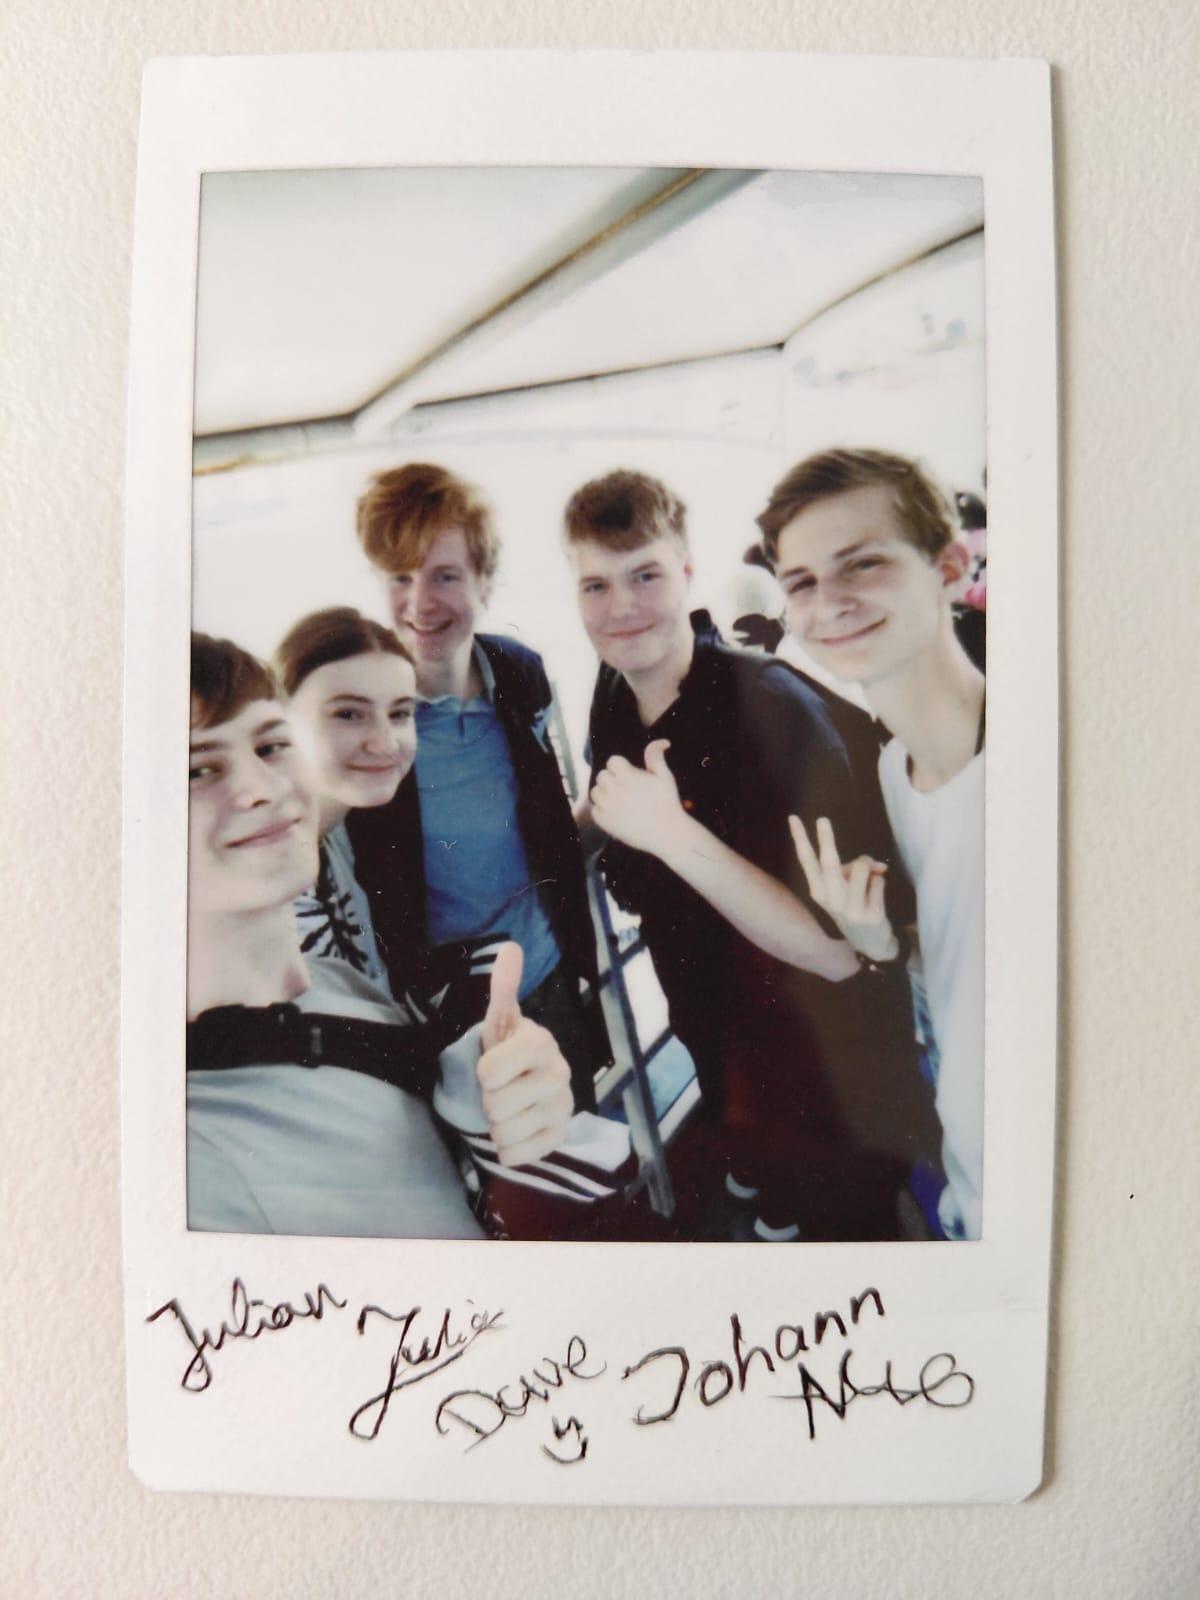 Julian
Julia
Dave
Johann